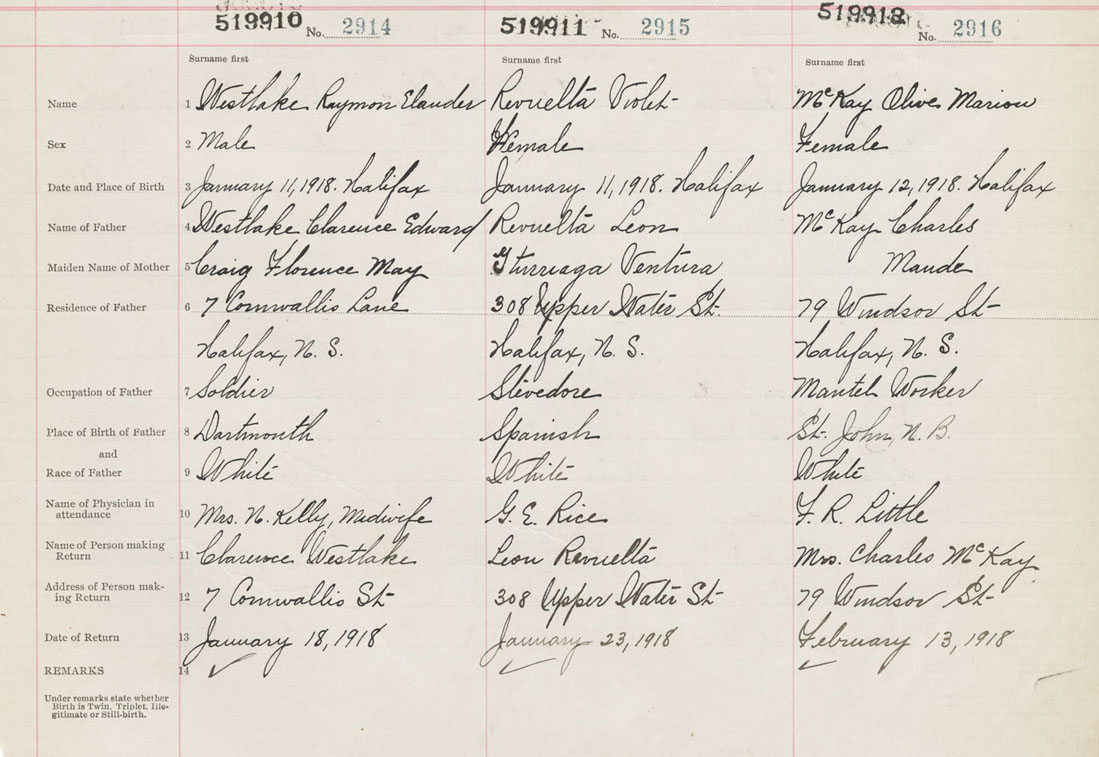 519910 No. 2914 519911 No. 2915 519912 No. 2916
Surname first Surname first Surname first
Name 1 Westlake Raymon Elander Revuelta Violet McKay Olive Marion
Sex 2 Male Female Female
Date and Place of Birth 3 January 11, 1918. Halifax January 11, 1918. Halifax January 12, 1918. Halifax
Name of Father 4 Westlake Clarence Edward Revuelta Leon McKay Charles
Maiden Name of Mother 5 Craig Florence May Yturriaga Ventura Maude
Residence of Father 6 7 Cornwallis Lane 308 Upper Water St. 79 Windsor St
Halifax, N. S. Halifax, N. S. Halifax, N. S.
Occupation of Father 7 Soldier Stevedore Mantel Worker
Place of Birth of Father 8 Dartmouth Spanish St. John, N. B.
and
Race of Father 9 White White White
Name of Physician in
attendance 10 Mrs. N. Kelly, Midwife G. E. Rice F. R. Little
Name of Person making
Return 11 Clarence Westlake Leon Revuelta Mrs. Charles McKay
Address of Person mak-
ing Return 12 7 Cornwallis St 308 Upper Water St 79 Windsor St
Date of Return 13 January 18, 1918 January 23, 1918 February 13, 1918
REMARKS 14 ✓ ✓ ✓
Under remarks state whether
Birth is Twin, Triplet, Ille-
gitimate or Still-birth.